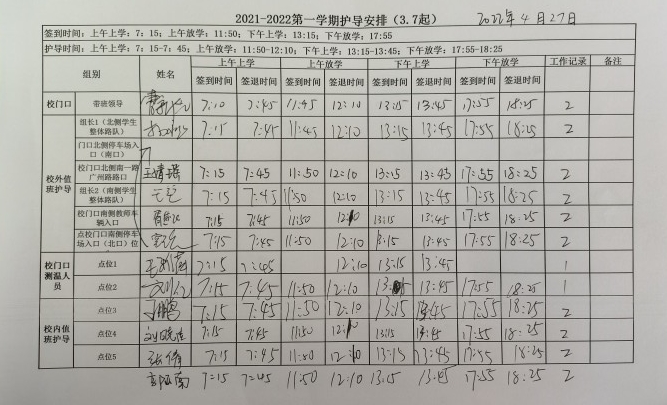 2021-2022第一学期护导安排（3.7起） 2022年4月27日
签到时间：上午上学：7：15；上午放学：11:50；下午上学：13:15；下午放学：17:55
护导时间：上午上学：7：15-7：45；上午放学：11:50-12:10；下午上学：13:15-13:45；下午放学：17:55-18:25
组别 姓名 上午上学 上午放学 下午上学 下午放学 工作记录 备注
签到时间 签退时间 签到时间 签退时间 签到时间 签退时间 签到时间 签退时间
校门口 带班领导 7:10 7:45 11:45 12:10 13:15 13:45 17:55 18:25 2
校外值班护导 组长1（北侧学生整体路队） 7:15 7:45 11:45 12:10 13:15 13:45 17:55 18:25 2
门口北侧停车场入口（南口）
校门口北侧南一路广州路路口 7:15 7:45 11:50 12:10 13:15 13:45 17:55 18:25 2
组长2（南侧学生整体路队） 7:15 7:45 11:50 12:10 13:15 13:45 17:55 18:25 2
校门口南侧教师车辆入口 7:15 7:45 11:50 12:10 13:15 13:45 17:55 18:25 2
点校门口南侧停车场入口（北口）位 7:15 7:45 11:50 12:10 13:15 13:45 17:55 18:25 2
校门口测温人员 点位1 7:15 7:45 12:10 13:15 13:45 1
点位2 7:15 7:45 11:50 12:10 13:15 13:45 17:55 18:25 1
校内值班护导 点位3 7:15 7:45 11:50 12:10 13:15 13:45 17:55 18:25 2
点位4 7:15 7:45 11:50 12:10 13:15 13:45 17:55 18:25 2
点位5 7:15 7:45 11:50 12:10 13:15 13:45 17:55 18:25 2
7:15 7:45 11:50 12:10 13:15 13:45 17:55 18:25 2